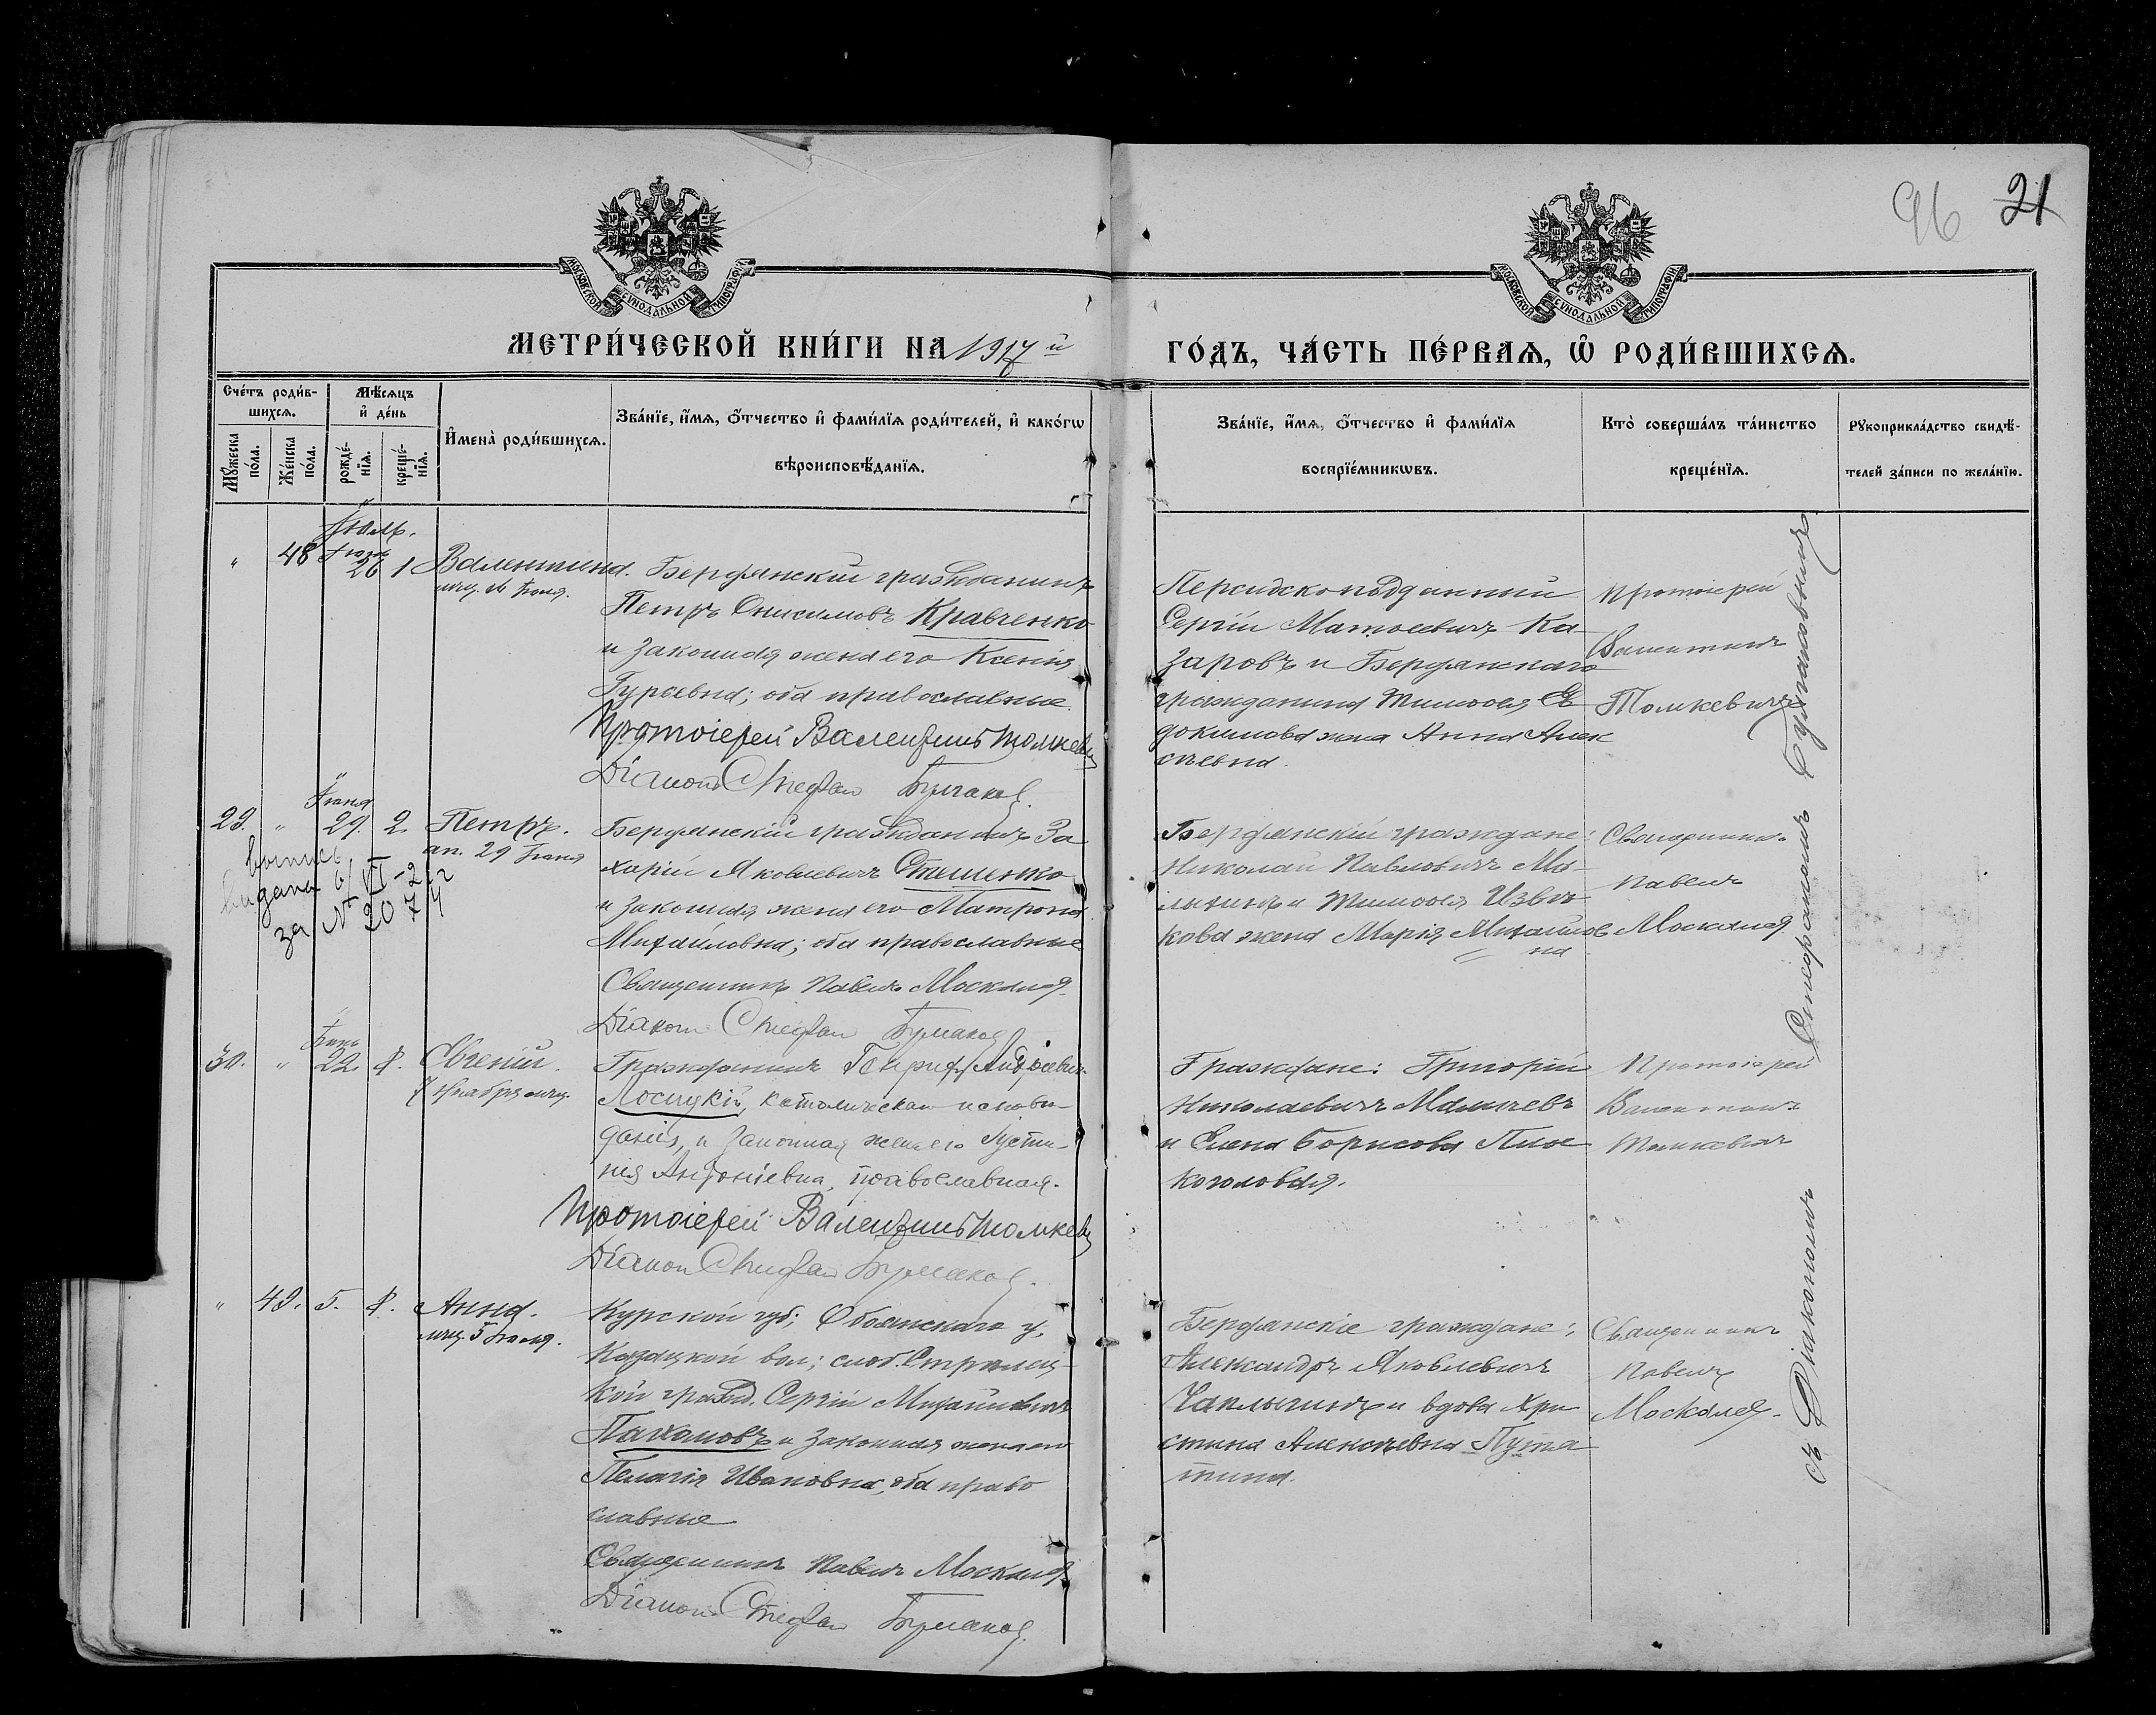 96 21
МОСКОВСКОЙ СѴНОДАЛЬНОЙ ТИПОГРАФІИ
МОСКОВСКОЙ СѴНОДАЛЬНОЙ ТИПОГРАФІИ
МЕТРИ́ЧЕСКОЙ КНИ́ГИ НА 1917 й
ГО́ДЪ, ЧА́СТЬ ПЕ́РВАѦ, Ѡ РОДИ́ВШИХСѦ.
Сче́тъ роди́в-
шихсѧ.
Мꙋжеска по́ла.
Же́нска по́ла.
Мѣ́сѧцъ
и҆ де́нь
рожде́-
нїѧ.
креще́-
нїѧ.
И҆мена̀ роди́вшихсѧ.
Зва́нїе, и҆́мѧ, ѻ҆́тчество и҆ фами́лїѧ роди́телей, и҆ како́гѡ
вѣроисповѣ́данїѧ.
Зва́нїе, и҆́мѧ, ѻ҆́тчество и҆ фами́лїѧ
воспрїе́мникѡвъ.
Кто̀ соверша́лъ та́инство
креще́нїѧ.
Рꙋкоприкла́дство свидѣ́-
телей за́писи по жела́нїю.
Іюль.
" 48 Іюня 26 1 Валентина.
мчц. Іюля.
Бердянскій гражданинъ
Петръ Онисимовъ Кравченко
и законная жена его Ксенія
Гурьевна; оба православные.
Протоіерей Валентинъ Толкевич
Діаконъ Стефан Булгаков.
Персидскоподданный
Сергій Матвеевичъ Ка-
заровъ и Бердянскаго
гражданина Тимофея Ев
докимова жена Анна Алек
сѣевна.
Протоіерей
Валентинъ
Толкевичъ
29. " Іюня 29. 2. Петръ.
ап. 29 Іюня
выпись
видана 6/VI-2
за № 2074
Бердянскій гражданинъ За
харій Яковлевичъ Стешенко
и законная жена его Матрона
Михайловна; оба православные
Священникъ Павелъ Москалев
Діаконъ Стефан Булгаков
Бердянскій граждане:
Николай Павловичъ Ма-
и Тимофея
кова жена Марія Михайлов
на
Священникъ
Павелъ
Москалев
30. " Іюня 22. 8. Евгеній.
7 ноября мчц.
Гражданинъ Генрих Андреевич
Лосицкій, католическаго исповѣ-
данія, и законная жена его Густи-
нія Антоніевна, православная.
Протоіерей Валентинъ Толкевич
Діакон Стефан Булгаков.
Граждане: Григорій
Николаевичъ Малычевъ
и Елена Борисова
коголовая.
Протоіерей
Валентинъ
Толкевичъ
" 49. 5. 8. Анна.
мчц. 5 Іюля.
Курской губ; Обоянскаго у,
Казацкой вол; слоб. Стрѣлец-
кой гражд. Сергій Михайловичъ
Пахомовъ и законная жена его
Пелагія Ивановна, оба право
славные
Священникъ Павелъ Москалев
Діаконъ Стефан Булгаков.
Бердянскіе граждане:
Александръ Яковлевичъ
Чаплыгинъ и вдова Хри
стина Алексѣевна Путя
тина.
Священникъ
Павелъ
Москалев.
съ Діакономъ Стефаномъ Булгаковымъ